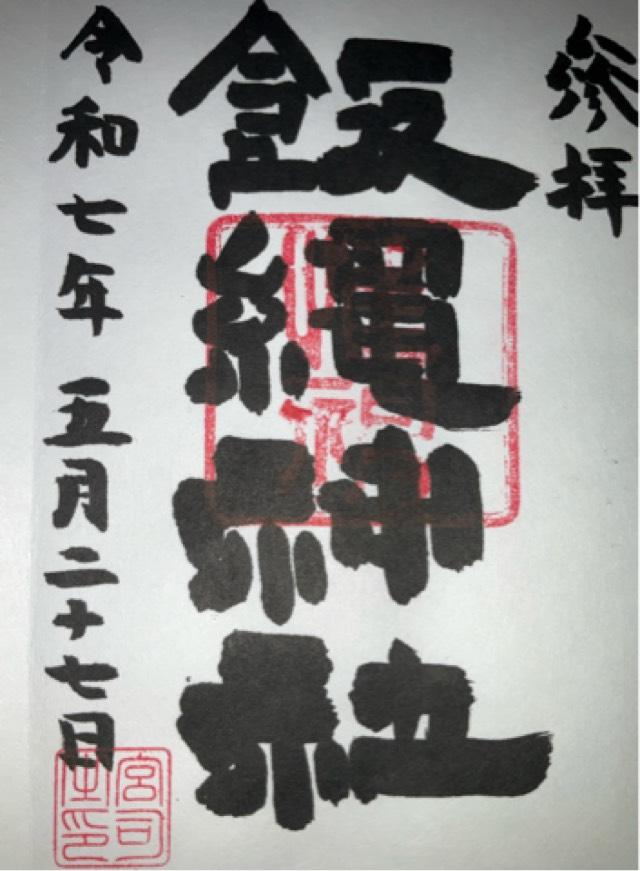 参拝
飯縄神社
令和七年五月二十七日
宮司之印